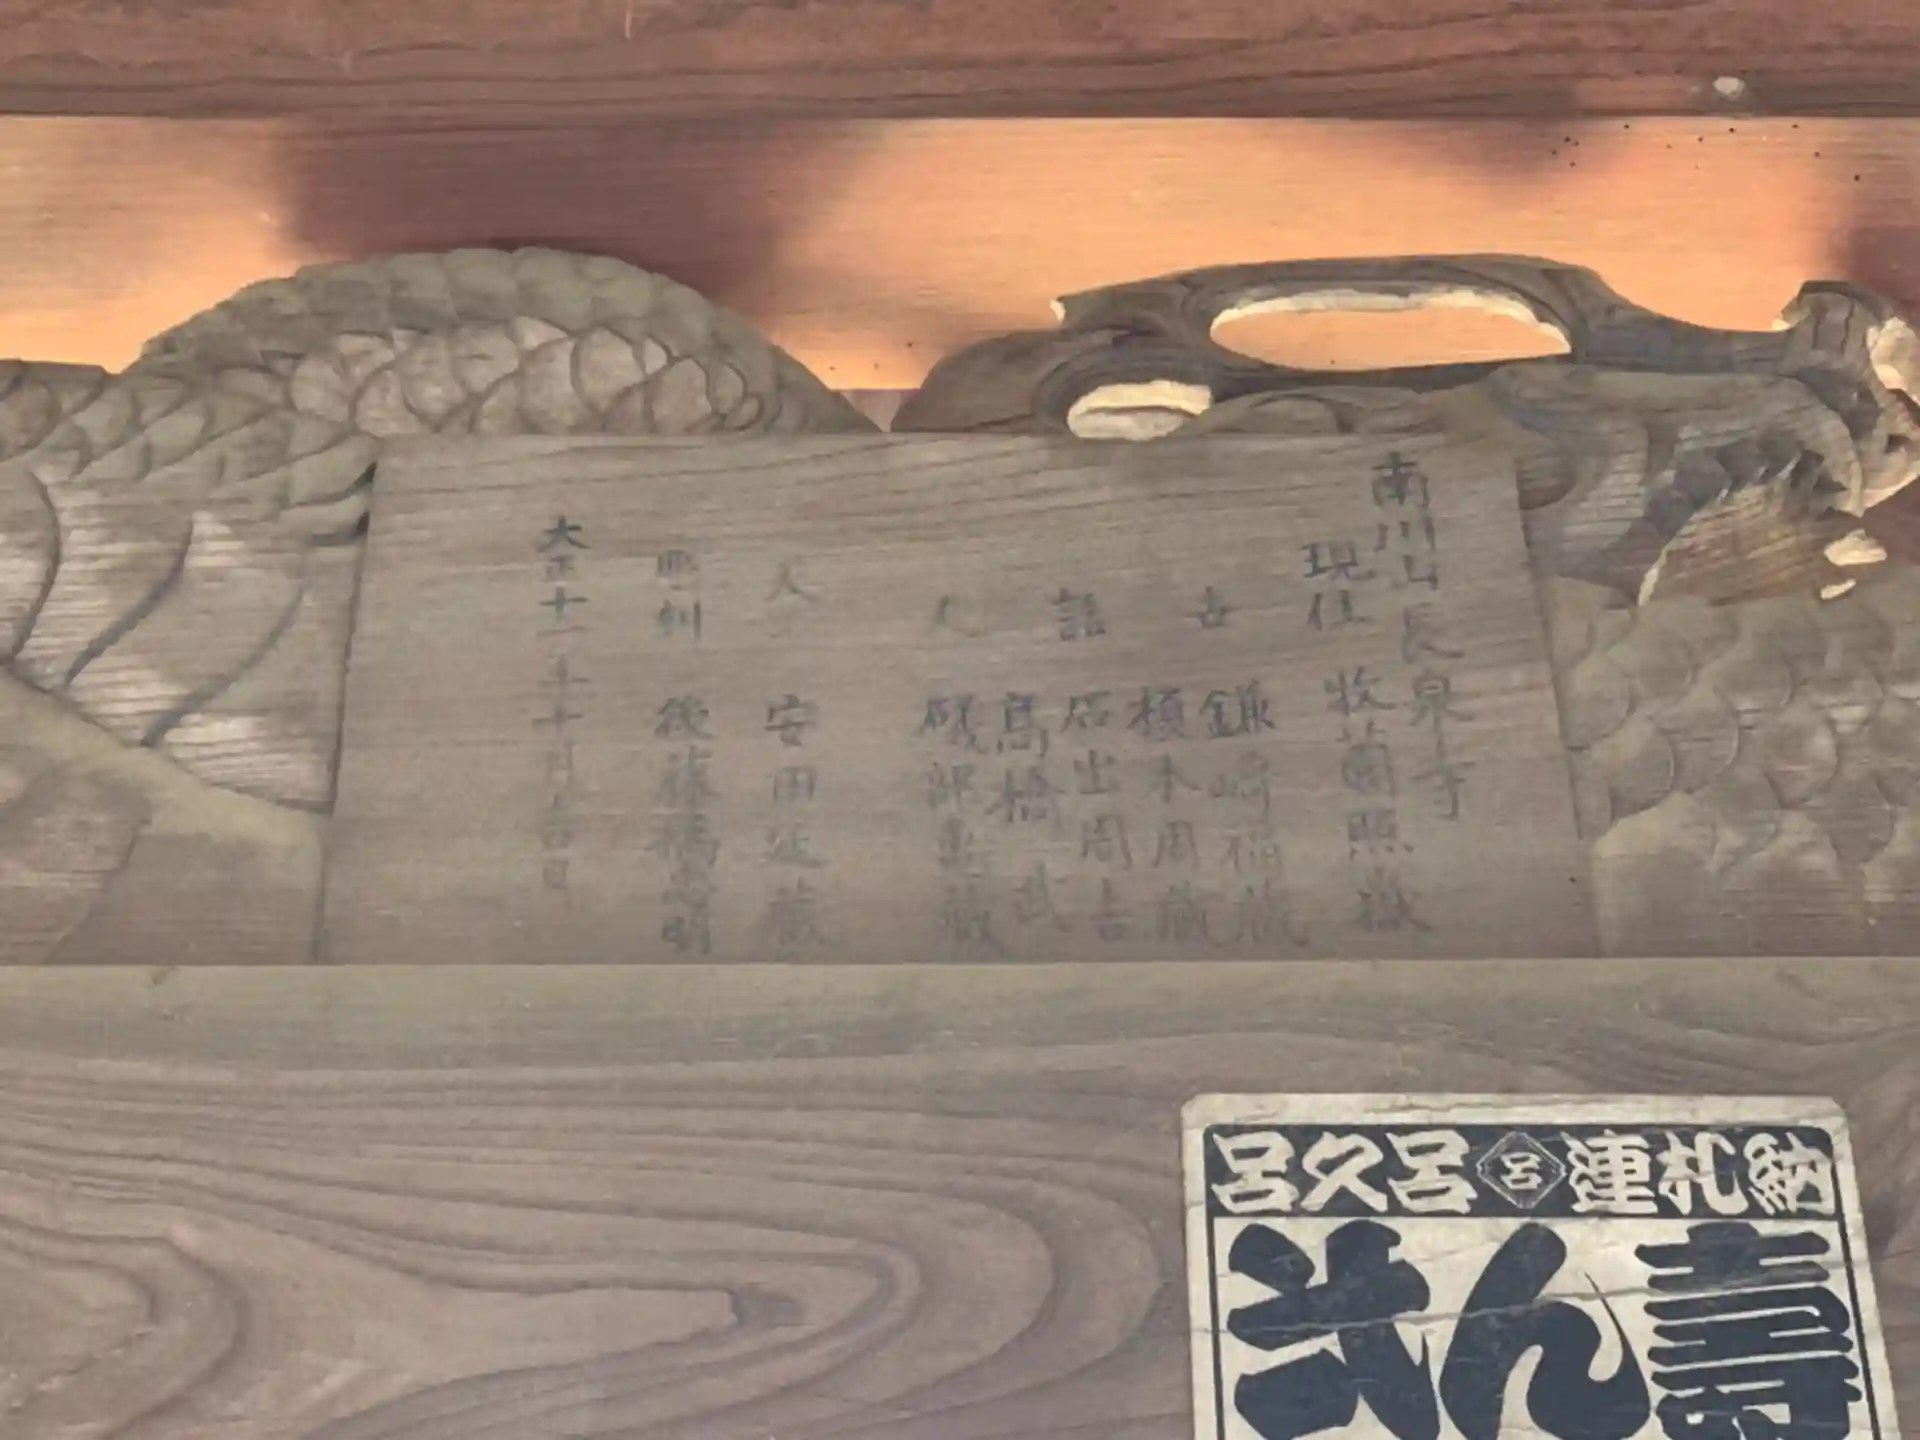 南川山長泉寺
現住 牧蘭照嶽
世 鎌崎福蔵
榎木周蔵
話 石出周吉
高橋 武
人 磯部亀蔵
大工 安田延蔵
彫刻 後藤橘忠明
大正十一年十月吉日
納札連 呂 呂久呂
寿ん弐